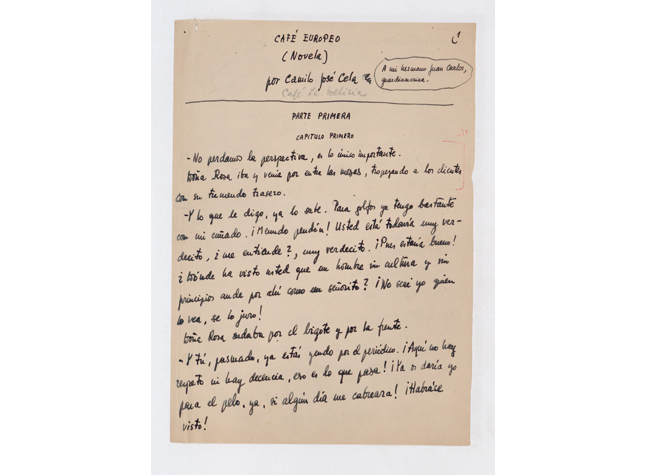 CAFÉ EUROPEO
(Novela)
por Camilo José Cela
Café La Delicia
A mi hermano Juan Carlos,
guardiamarina.
PARTE PRIMERA
CAPITULO PRIMERO
- No perdamos la perspectiva, es lo único importante.
Doña Rosa iba y venía por entre las mesas, tropezando a los clientes
con su tremendo trasero.
- Y lo que le digo, ya lo sabe. Para golfos ya tengo bastante
con mi cuñado. ¡Menudo pendón! Usted está todavía muy ver-
decito, ¿me entiende?, muy verdecito. ¡Pues estaría bueno!
¿Dónde ha visto usted que un hombre sin cultura y sin
principios ande por ahí como un señorito? ¡No seré yo quien
lo vea, se lo juro!
Doña Rosa sudaba por el bigote y por la frente.
- Y tú, pasmado, ya estás yendo por el periódico. ¡Aquí no hay
respeto ni hay decencia, eso es lo que pasa! ¡Ya os daría yo
para el pelo, ya, si algún día me cabreara! ¡Habráse
visto!